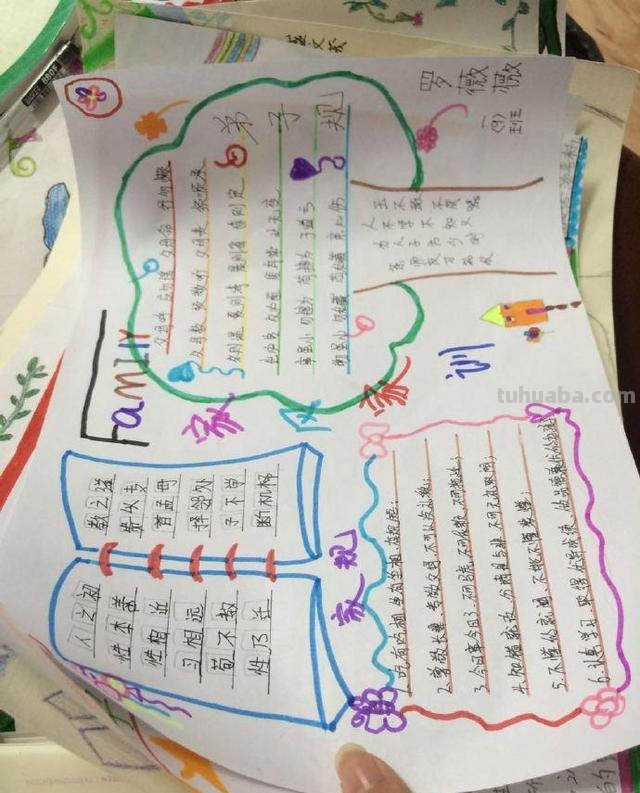 FamILY
家风家训
人之初
性本善
性相近
习相远
苟不教
性乃迁
教之道
贵以专
昔孟母
择邻处
子不学
断机杼
弟子规
父母呼 应勿缓 父母命 行勿懒
父母教 须敬听 父母责 须顺承
冬则温 夏则凊 晨则省 昏则定
出必告 反必面 居有常 业无变
事虽小 勿擅为 苟擅为 子道亏
物虽小 勿私藏 苟私藏 亲心伤
玉不琢 不成器
人不学 不知义
为人子 方少时
亲师友
罗薇薇
一(9)班
家规
吃有吃相,坐有坐相,
2.尊敬长辈,孝敬父母,不可以发
3.今日事今日了,不可马虎,不可依赖,不可拖延;
4.知错就改,分清是与非,不可无理取闹;
5.不
6.认真学习,
tuhuaba.com